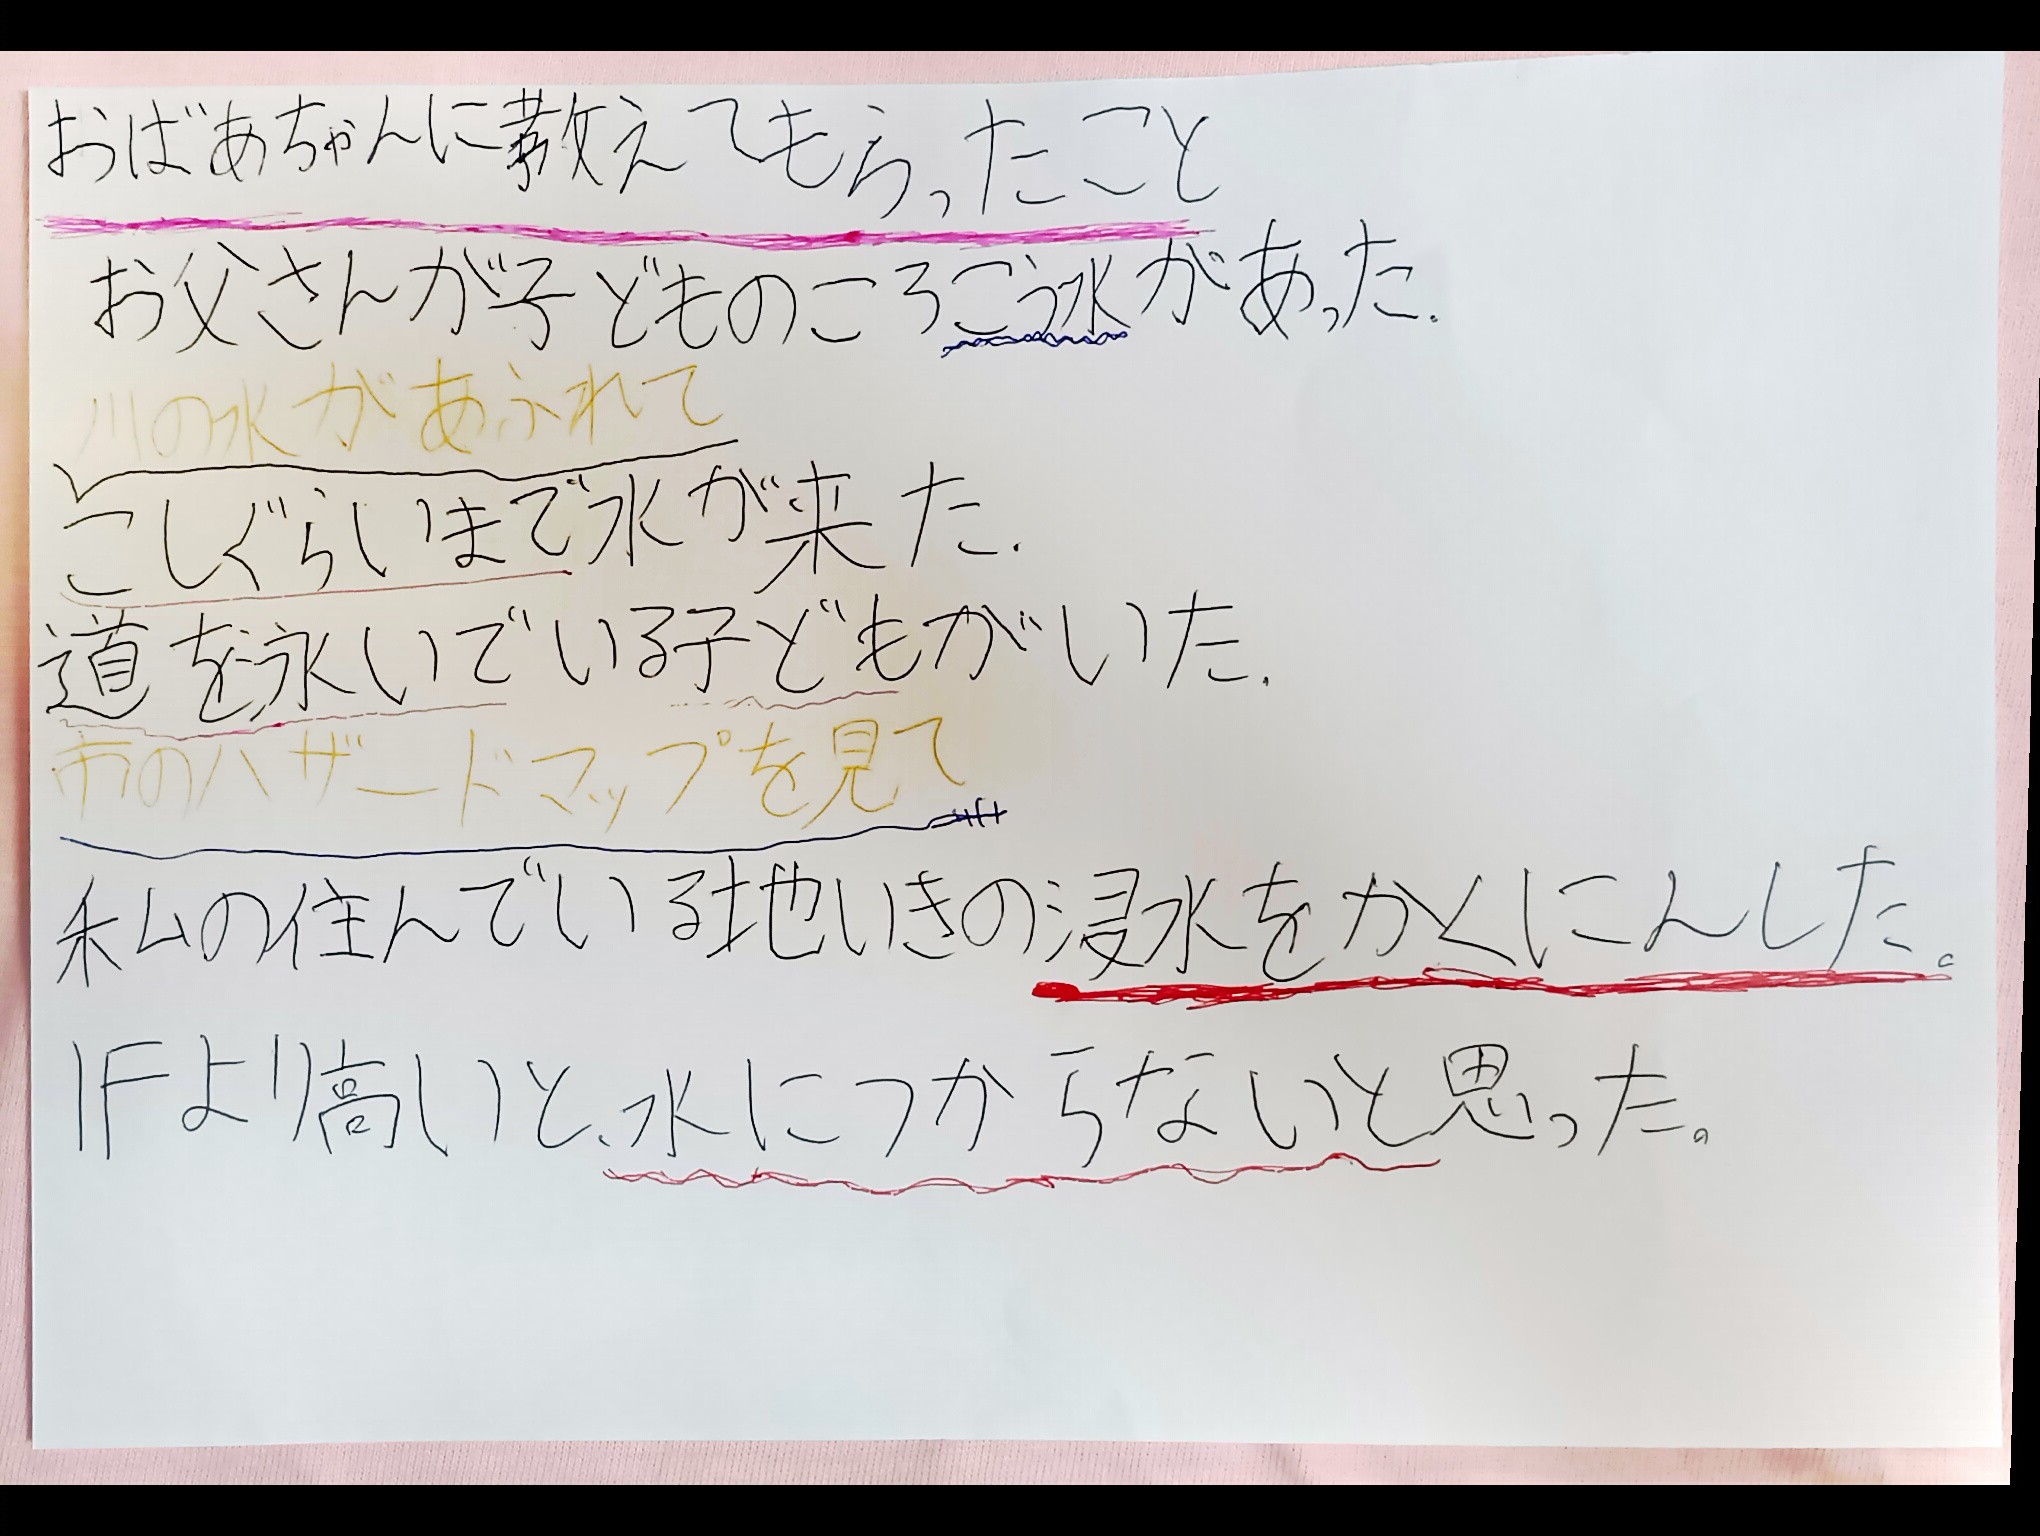 おばあちゃんに教えてもらったこと
お父さんが子どものころごう水があった.
川の水があふれて
こしぐらいまで水が来た.
道を永いでいる子どもがいた.
市のハザードマップを見て
私の住んでいる地いきの浸水をかくにんした。
1Fより高いと、水につからないと思った。